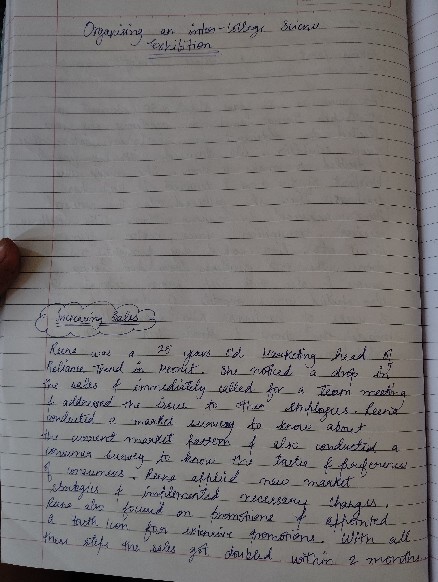 Organising an inter-college Science
Exhibition
Increasing Sales -
was a 25 years old Marketing head of
Reliance Trend in . She noticed a drop in
the sales & immediately called for a team meeting
& addressed the issue to
conducted a market survey to know about
the current market pattern & also conducted a
consumer survey to know the tastes & preferences
of consumers. applied new market
strategies & implemented necessary changes.
also focused on promotions & appointed
a for extensive promotions. With all
these steps the sales got doubled within 2 months